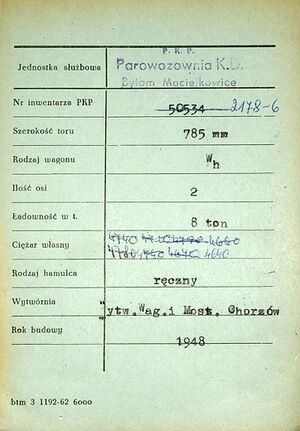 P. K. P.
Jednostka służbowa Parowozownia K.D.
Bytom Maciejkowice
Nr inwentarza PKP 50534 2178-6
Szerokość toru 785 mm
Rodzaj wagonu Wh
Ilość osi 2
Ładowność w t. 8 ton
Ciężar własny 4740 4640
4780 4640
Rodzaj hamulca ręczny
Wytwórnia Wytw.Wag.i Most. Chorzów
Rok budowy 1948
btm 3 1192-62 6000